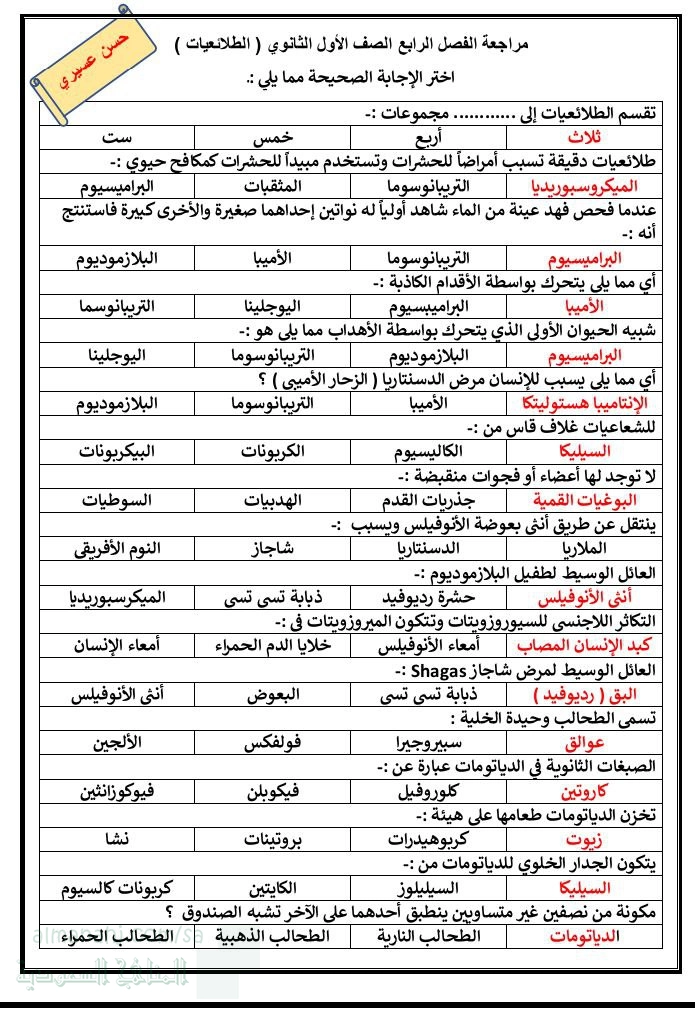 حسن عسيري
مراجعة الفصل الرابع الصف الأول الثانوي ( الطلائعيات )
اختر الإجابة الصحيحة مما يلي :.
تقسم الطلائعيات إلى ............ مجموعات :-
ثلاث أربع خمس ست
طلائعيات دقيقة تسبب أمراضاً للحشرات وتستخدم مبيداً للحشرات كمكافح حيوي :-
الميكروسبوريديا التريبانوسوما المثقبات البراميسيوم
عندما فحص فهد عينة من الماء شاهد أولياً له نواتين إحداهما صغيرة والأخرى كبيرة فاستنتج
أنه :-
البراميسيوم التريبانوسوما الأميبا البلازموديوم
أي مما يلي يتحرك بواسطة الأقدام الكاذبة :-
الأميبا البراميبسيوم اليوجلينا التريبانوسما
شبيه الحيوان الأولى الذي يتحرك بواسطة الأهداب مما يلي هو :-
البراميسيوم البلازموديوم التريبانوسوما اليوجلينا
أي مما يلي يسبب للإنسان مرض الدسنتاريا ( الزحار الأميبي ) ؟
الإنتاميبا هستوليتكا الأميبا التريبانوسوما البلازموديوم
للشعاعيات غلاف قاس من :-
السيليكا الكاليسيوم الكربونات البيكربونات
لا توجد لها أعضاء أو فجوات منقبضة :-
البوغيات القمية جذريات القدم الهدبيات السوطيات
ينتقل عن طريق أنثى بعوضة الأنوفيلس ويسبب :-
الملاريا الدسنتاريا شاجاز النوم الأفريقي
العائل الوسيط لطفيل البلازموديوم :-
أنثى الأنوفيلس حشرة رديوفيد ذبابة تسي تسى الميكرسبوريديا
التكاثر اللاجنسى للسيوروزويتات وتتكون الميروزويتات في :-
كبد الإنسان المصاب أمعاء الأنوفيلس خلايا الدم الحمراء أمعاء الإنسان
العائل الوسيط لمرض شاجاز Shagas :-
البق ( رديوفيد ) ذبابة تسي تسى البعوض أنثى الأنوفيلس
تسمى الطحالب وحيدة الخلية :
عوالق سبيروجيرا فولفكس الألجين
الصبغات الثانوية في الدياتومات عبارة عن :-
كاروتين كلوروفيل فيكوبلن فيوكوزانثين
تخزن الدياتومات طعامها على هيئة :-
زيوت كربوهيدرات بروتينات نشا
يتكون الجدار الخلوي للدياتومات من :-
السيليكا السيليلوز الكايتين كربونات كالسيوم
مكونة من نصفين غير متساويين ينطبق أحدهما على الآخر تشبه الصندوق ؟
الدياتومات الطحالب النارية الطحالب الذهبية الطحالب الحمراء
almanahj.com/sa
المناهج السعودية